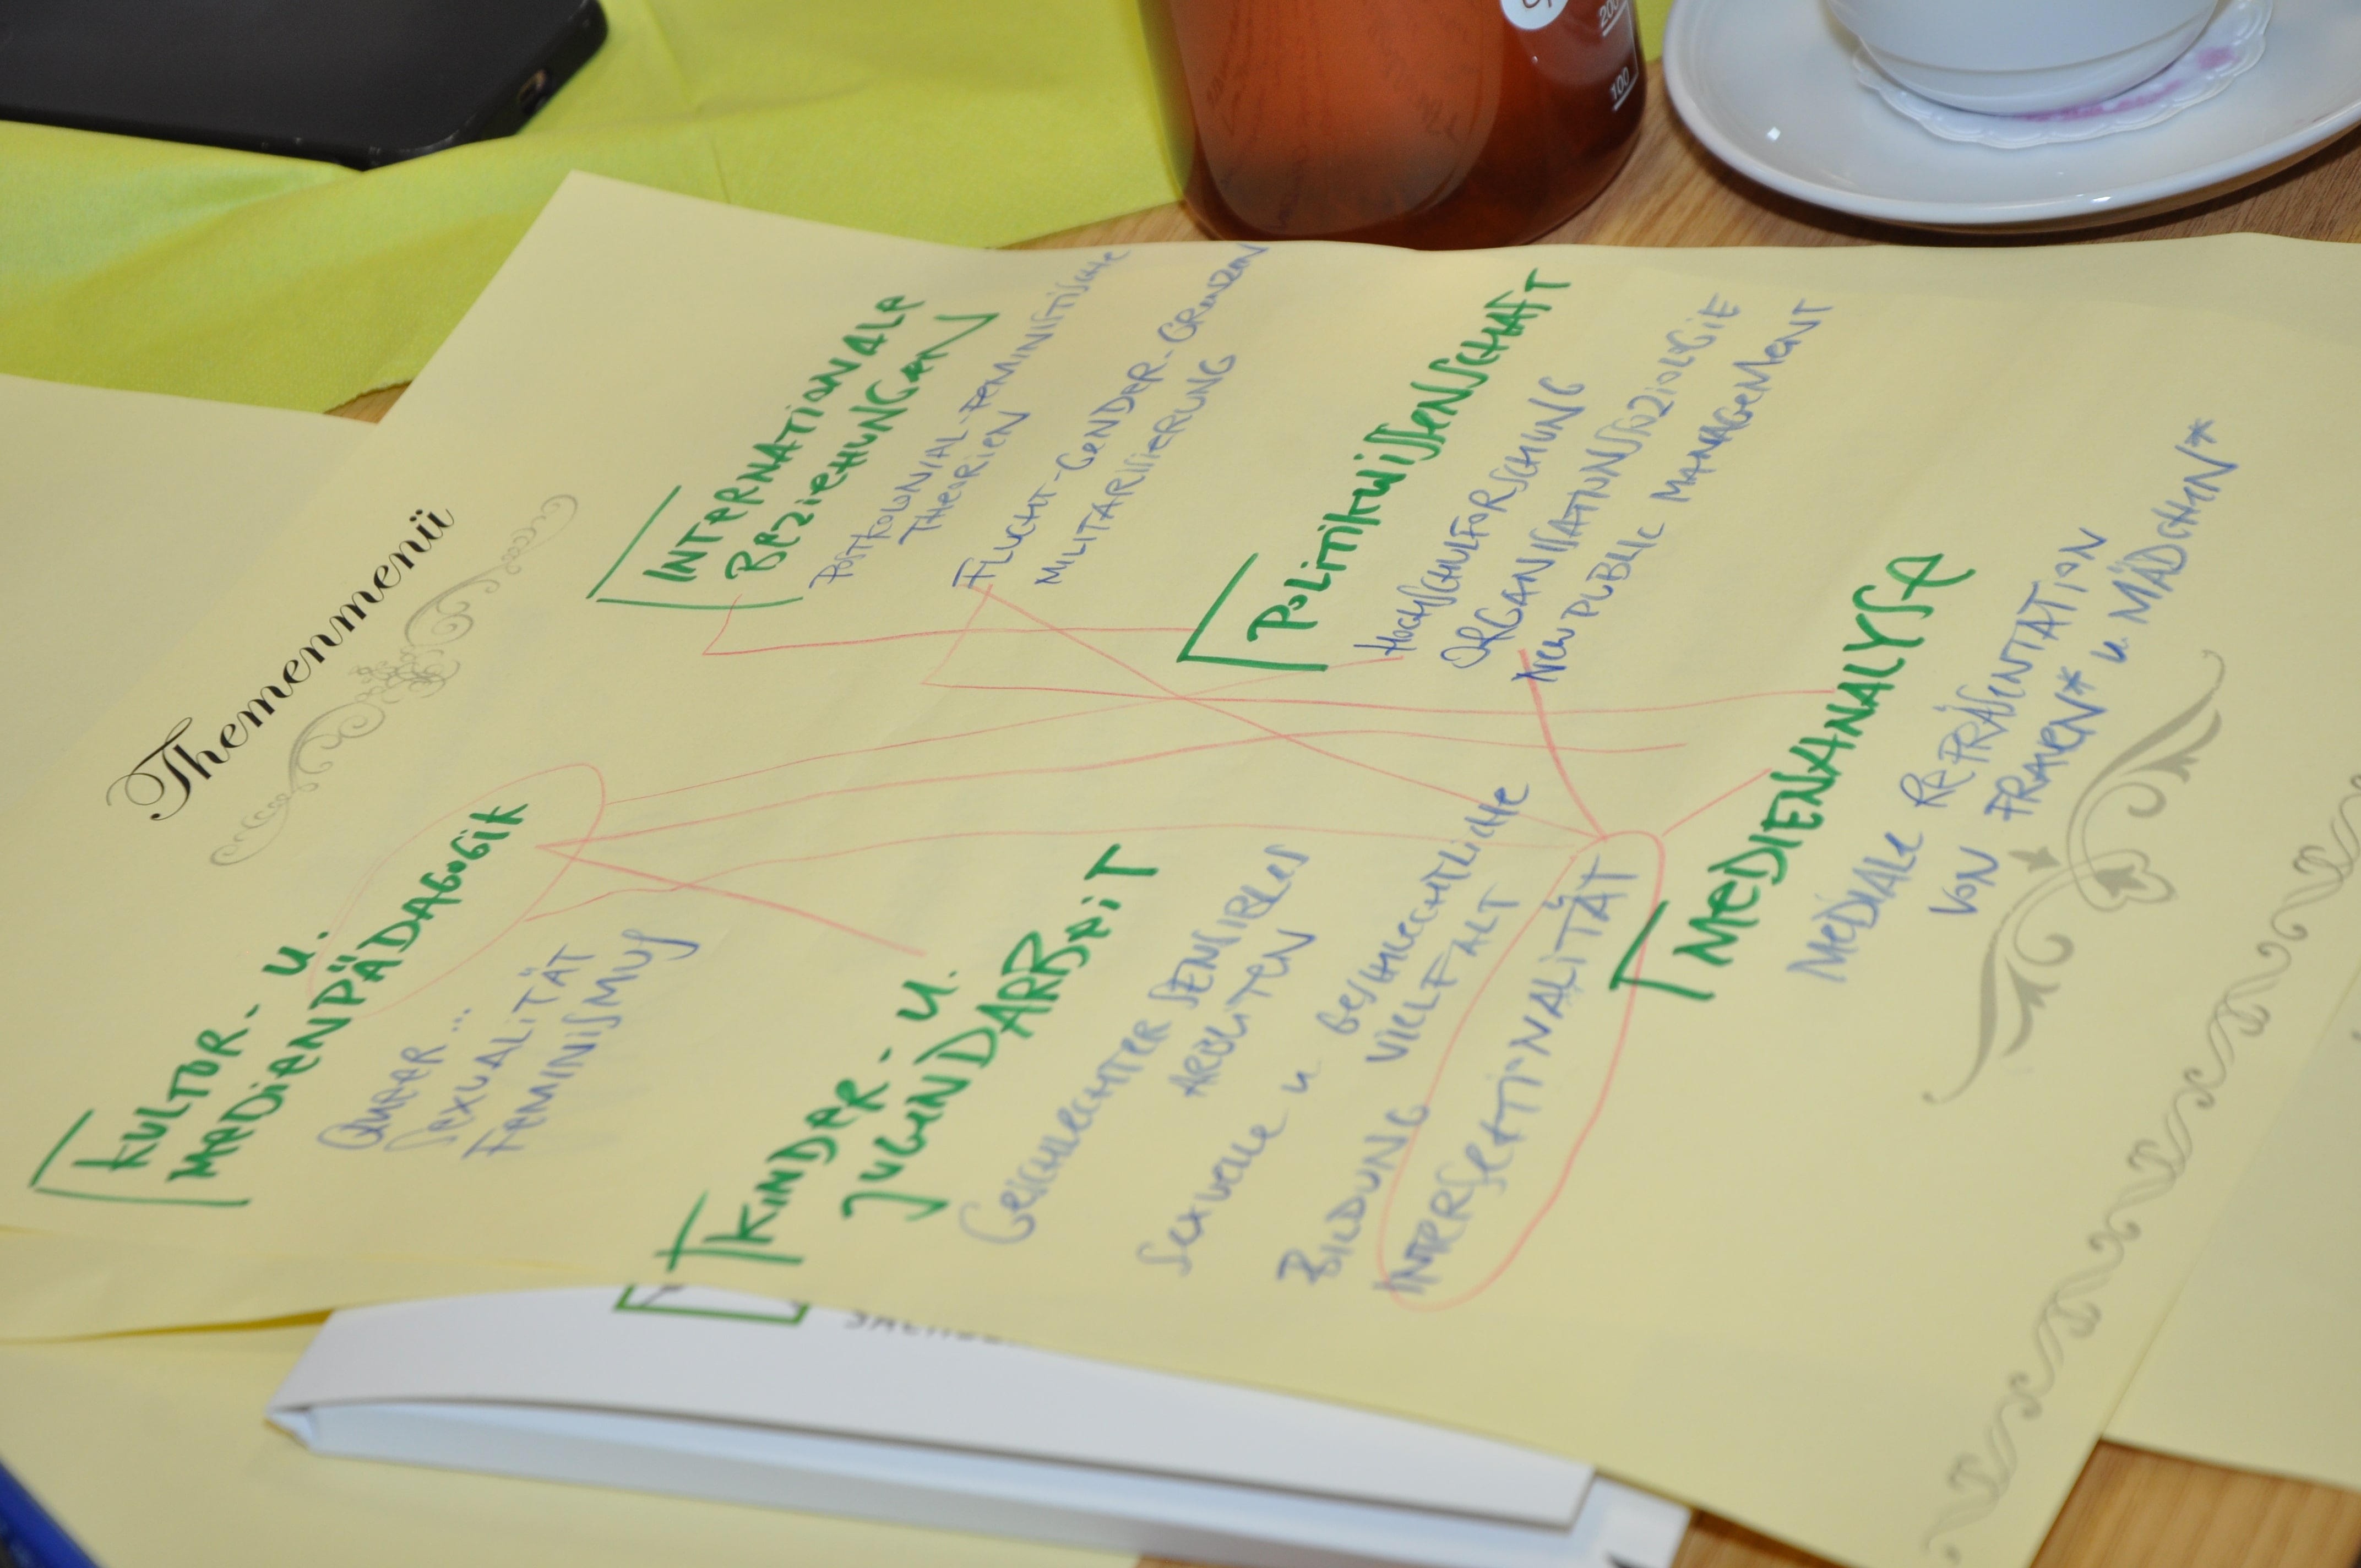 Themenmenü
INTERNATIONALE
BEZIEHUNGEN
POSTKOLONIAL-FEMINISTISCHE
THEORIEN
FLUCHT-GENDER-GRENZEN
MILITARISIERUNG
POLITIKWISSENSCHAFT
HOCHSCHULFORSCHUNG
ORGANISATIONSSOZIOLOGIE
NEW PUBLIC MANAGEMENT
MEDIENANALYSE
MEDIALE REPRÄSENTATION
VON FRAUEN* u MÄDCHEN*
KULTUR- u.
MEDIENPÄDAGOGIK
QUEER...
SEXUALITÄT
FEMINISMUS
KINDER- u.
JUGENDARBEIT
GESCHLECHTER SENSIBLES
ARBEITEN
SEXUELLE u GESCHLECHTLICHE
VIELFALT
BILDUNG
INTERSEKTIONALITÄT
200
100